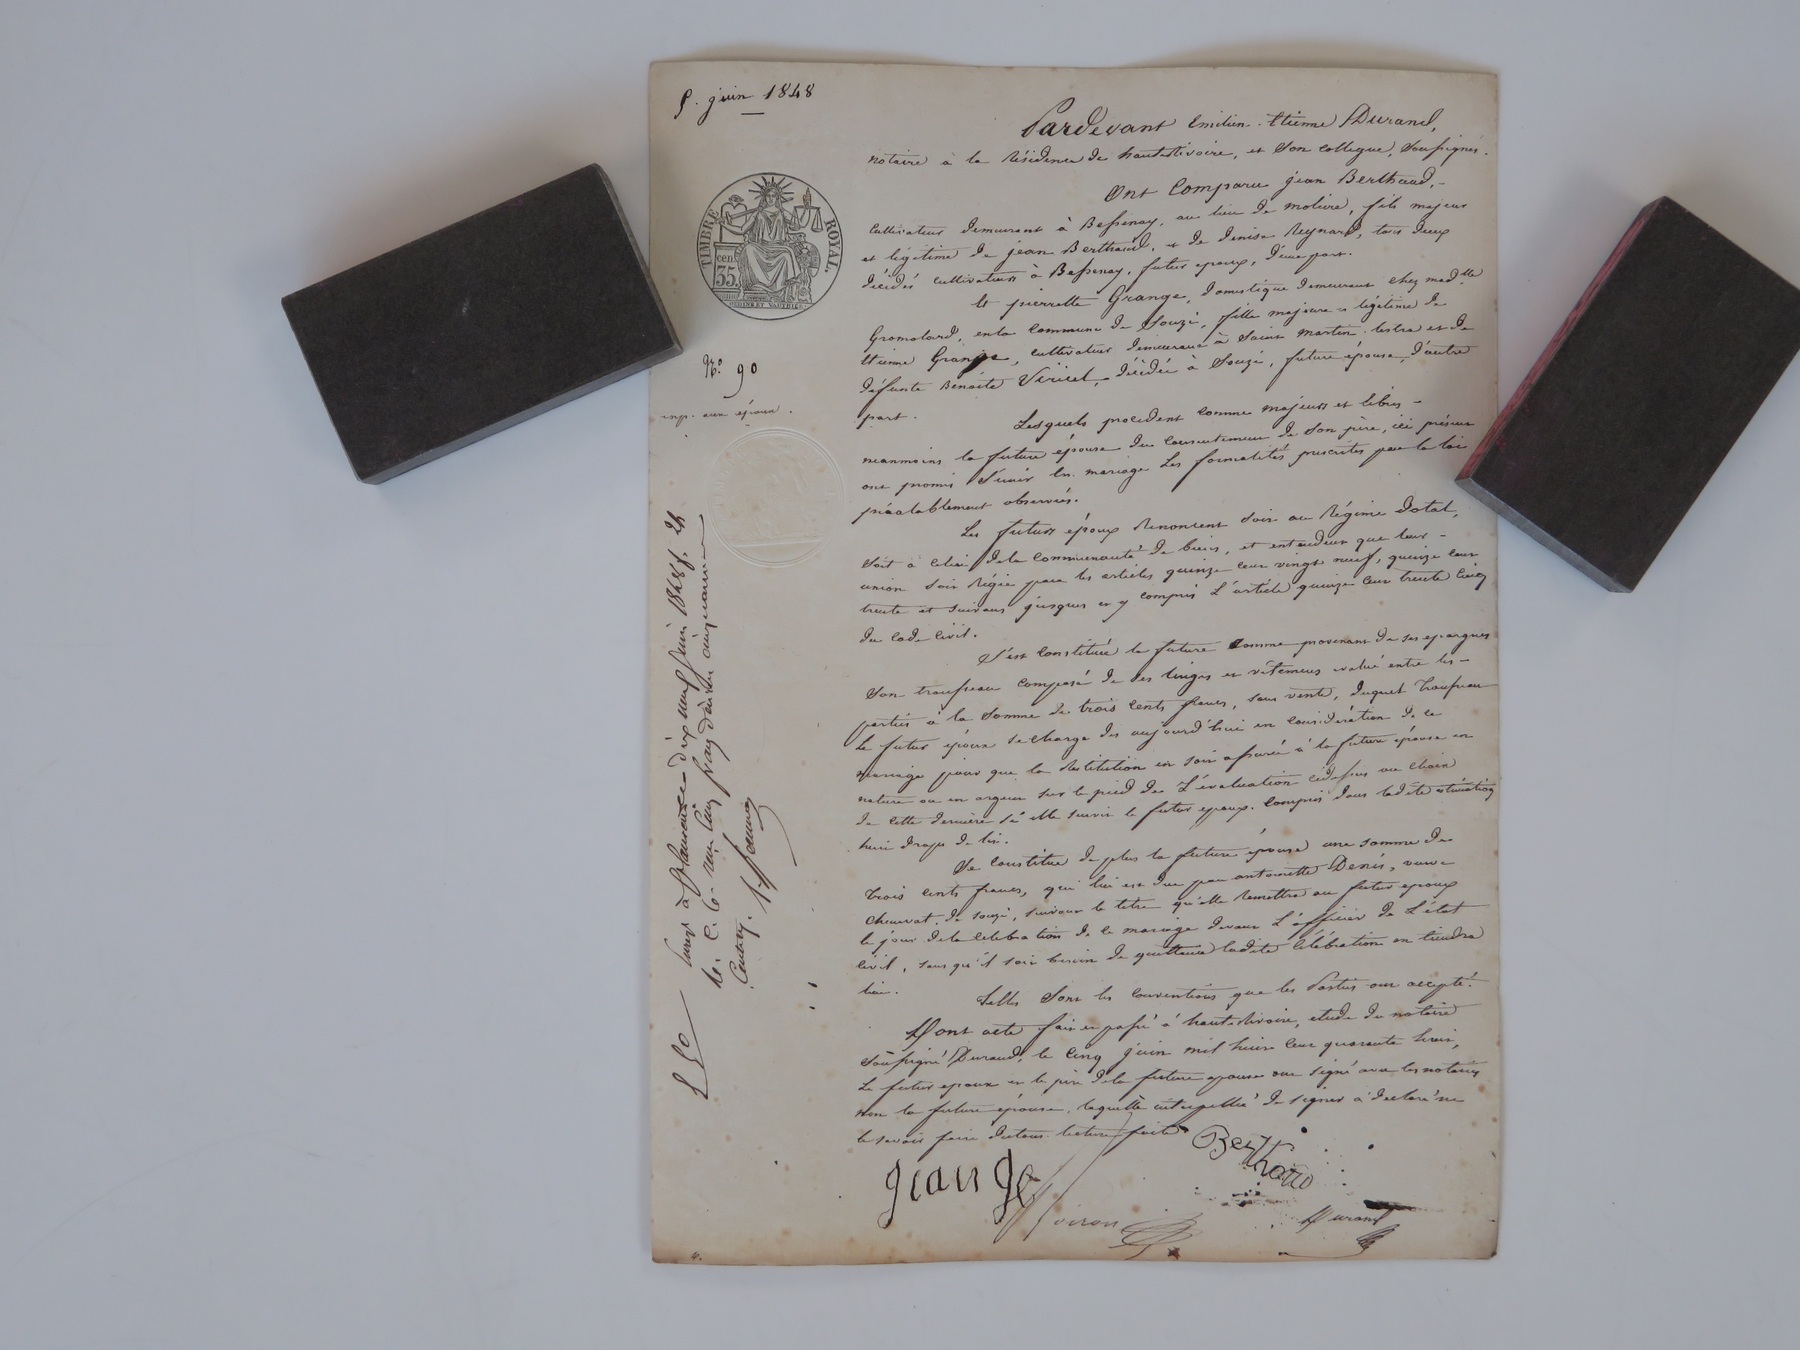 5. juin 1848
Pardevant Emilien Etienne Durand,
notaire à la Résidence de hauterivoire, et Son collegue, Soussignés.
Ont Comparu jean Berthaud,
cultivateur demeurant à Bessenay, au lieu de moliere, fils majeur
et légitime de jean Berthaud, et de denise Reynard, tous deux
décédés cultivateurs à Bessenay, futur epoux, d'une part.
Et pierrette Grange, domestique demeurant chez mad.lle
Gromolard, en la commune de Souzi, fille majeure et légitime de
Etienne Grange, cultivateur demeurant à Saint martin lestra et de
défunte Benoite Viricel, décédée à Souzi, future épouse, d'autre
part.
Lesquels procedent comme majeurs et libres
neanmoins la future épouse du consentement de son père, ici présent
ont promis S'unir en mariage les formalités prescrites par la loi
préalablement observées.
Les futurs époux Renoncent soit au Régime dotal,
soit à celui de la communauté de biens, et entendent que leur
union soit régie par les articles quinze cent vingt neuf, quinze cent
trente et suivans jusques et y compris L'article quinze cent trente cinq
du code civil.
S'est constituée la future comme provenant de ses epargnes
Son trousseau composé de ses linges et vêtemens evalué entre les
parties à la somme de trois cents francs, sans vente, duquel trousseau
le futur époux se charge dès aujourd'hui en considération de ce
mariage pour que la Restitution en soit assurée à la future épouse en
nature ou en argent sur le pied de L'évaluation cidessus au choix
de cette dernière si elle survit le futur epoux. Compris dans ladite estimation
huit draps de lit.
Se constitue de plus la future épouse une somme de
trois cents francs, qui lui est due par antoinette Denis, veuve
Chouvat, de souzi, suivant le titre qu'elle Remettra au futur epoux
le jour de la celebration de ce mariage devant L'officier de L'état
civil, sans qu'il soit besoin de quittance ladite Célébration en tiendra
lieu.
Telles Sont les conventions que les Parties ont accepté.
Dont acte fait et passé à hauterivoire, etude du notaire
Soussigné Durand, le cinq juin mil huit cent quarante huit,
Le futur epoux et le père de la future epouse ont signé avec les notaires
non la future épouse, laquelle interpellée de signer a déclaré ne
le savoir faire du tout lecture faite
TIMBRE ROYAL.
cen.
35.
N.o 90
exp. aux époux.
dix neuf juin 1848 f. 24
jean
Berthaud
Durand